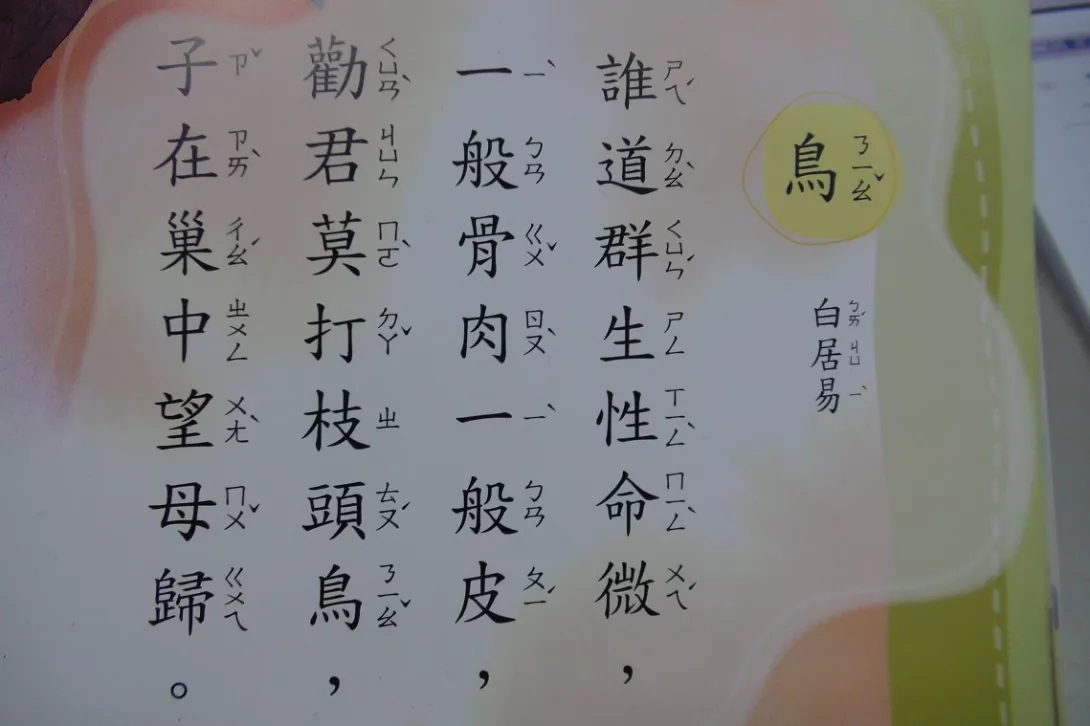 鳥ㄋㄧㄠˇ
白ㄅㄞˊ居ㄐㄩ易ㄧˋ
誰ㄕㄟˊ道ㄉㄠˋ群ㄑㄩㄣˊ生ㄕㄥ性ㄒㄧㄥˋ命ㄇㄧㄥˋ微ㄨㄟˊ，
一ㄧˋ般ㄅㄢ骨ㄍㄨˇ肉ㄖㄡˋ一ㄧˋ般ㄅㄢ皮ㄆㄧˊ，
勸ㄑㄩㄢˋ君ㄐㄩㄣ莫ㄇㄛˋ打ㄉㄚˇ枝ㄓ頭ㄊㄡˊ鳥ㄋㄧㄠˇ，
子ㄗˇ在ㄗㄞˋ巢ㄔㄠˊ中ㄓㄨㄥ望ㄨㄤˋ母ㄇㄨˇ歸ㄍㄨㄟ。